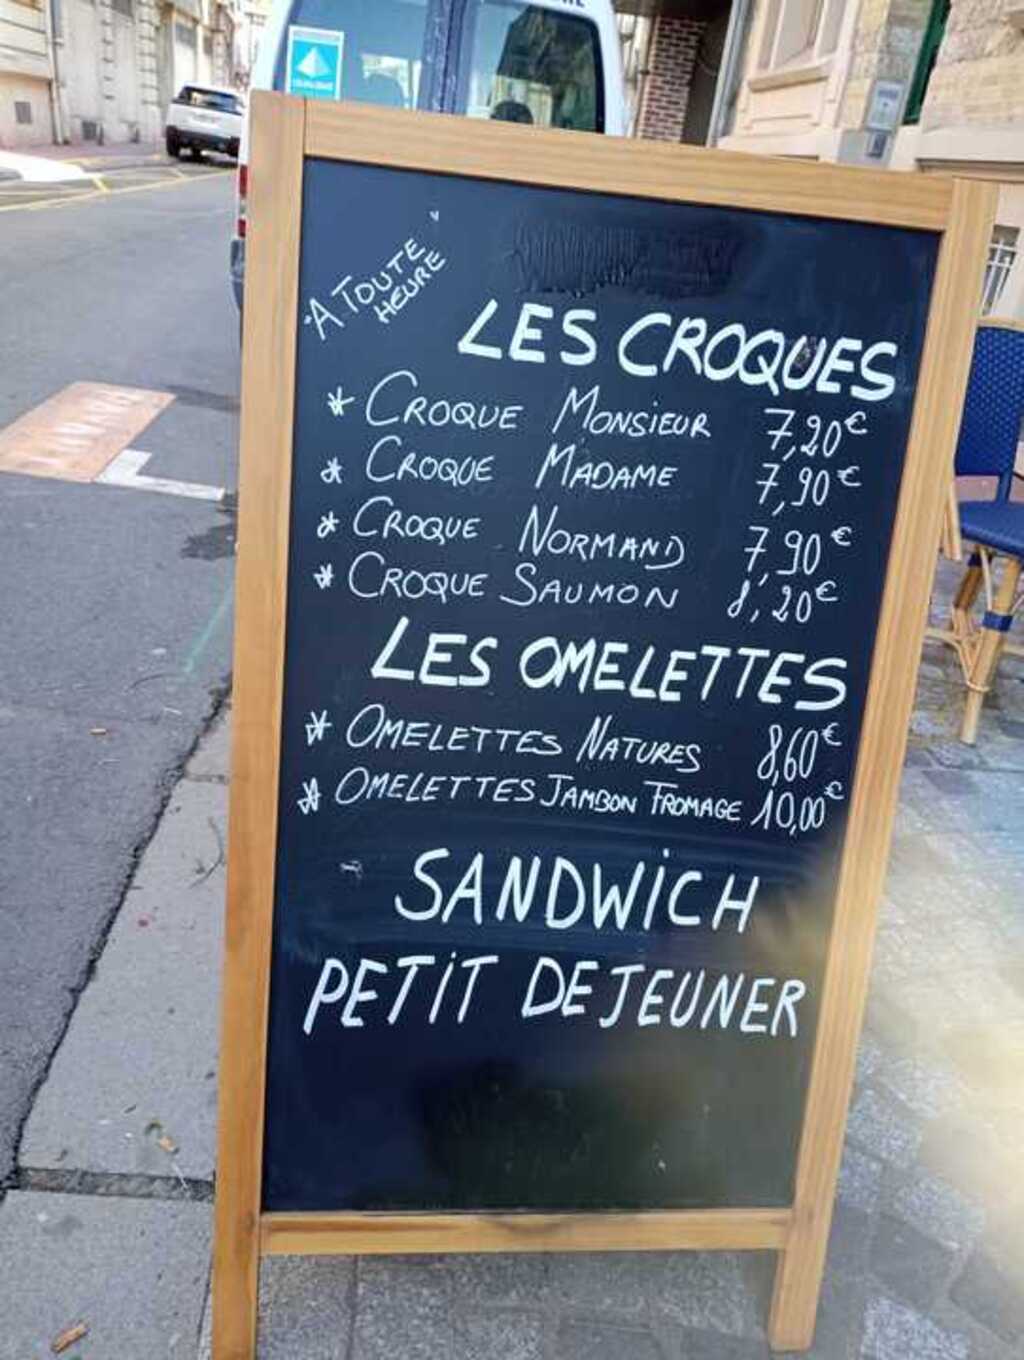 "A TOUTE HEURE"
LES CROQUES
* CROQUE MONSIEUR 7,20€
* CROQUE MADAME 7,90€
* CROQUE NORMAND 7,90€
* CROQUE SAUMON 8,20€
LES OMELETTES
* OMELETTES NATURES 8,60€
* OMELETTES JAMBON FROMAGE 10,00€
SANDWICH
PETIT DEJEUNER